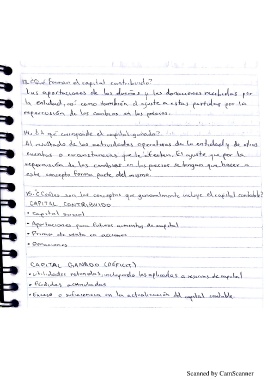 13.¿Qué forman el capital contribuido?
Las aportaciones de los dueños y las donaciones recibidas por
la entidad, así como también el ajuste a estas partidas por la
repercusión de los cambios en los precios.
14. A qué corresponde el capital ganado?
Al resultado de las actividades operativas de la entidad y de otros
eventos o circunstancias que le afecten. El ajuste que por la
repercusión de los cambios en los precios se tengan que hacer a
este concepto forma parte del mismo.
15.¿Cuáles son los conceptos que generalmente incluye el capital contable?
CAPITAL CONTRIBUIDO
• Capital social
• Aportaciones para futuros aumentos de capital
• Prima de venta en acciones
• Donaciones
CAPITAL GANADO (DÉFICIT)
• Utilidades retenidas, incluyendo las aplicadas a reservas de capital
• Pérdidas acumuladas
• Exceso o insuficiencia en la actualización del capital contable
Scanned by CamScanner